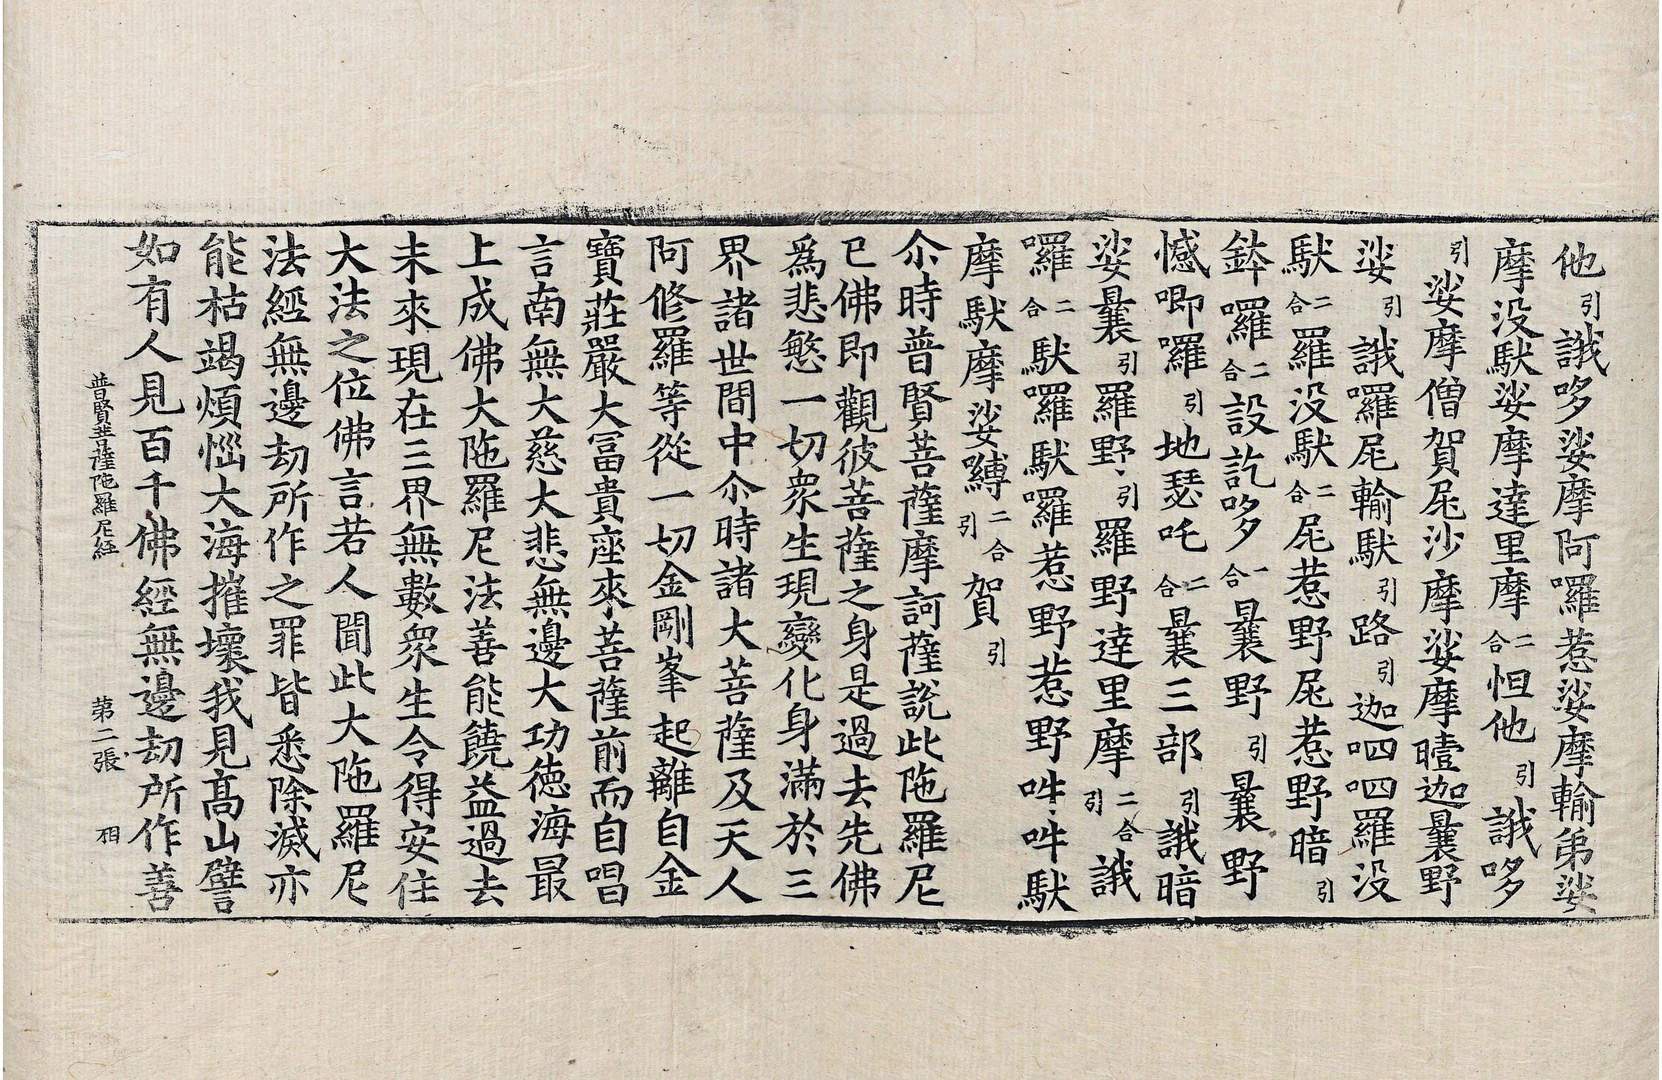 他引誐哆娑摩阿囉惹娑摩輸弟娑
摩没馱娑摩達里摩二合怛他引誐哆
引娑摩僧賀𡱝沙摩娑摩曀迦曩野
娑引誐囉𡱝輸馱引路引迦呬呬羅没
馱二合羅没馱二合𡱝惹野𡱝惹野暗引
鉢囉二合設訖哆一合曩野引曩野
憾唧囉引地瑟吒二合曩三部引誐暗
娑曩引羅野引羅野達里摩二合引誐
囉二合馱囉馱囉惹野惹野吽吽馱
摩馱摩娑縛二合引賀引
尒時普賢菩薩摩訶薩說此陁羅尼
已佛即觀彼菩薩之身是過去先佛
爲悲愍一切衆生現變化身滿於三
界諸世間中尒時諸大菩薩及天人
阿修羅等從一切金剛峯起離自金
寶莊嚴大冨貴座來菩薩前而自唱
言南無大慈大悲無邊大功德海最
上成佛大陁羅尼法善能饒益過去
未來現在三界無數衆生令得安住
大法之位佛言若人聞此大陁羅尼
法經無邊劫所作之罪皆悉除滅亦
能枯竭煩惱大海摧壞我見髙山譬
如有人見百千佛經無邊劫所作善
普賢菩薩陁羅尼經　第二張　相